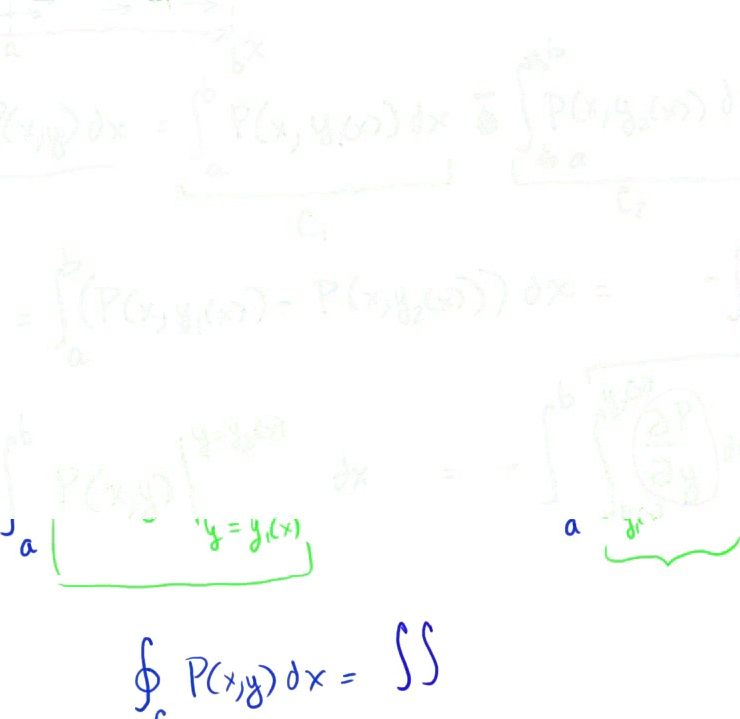 a b x
P(x,y) dx = ∫_a^b P(x, y_1(x)) dx - ∫_a^b P(x, y_2(x)) d
C_1 C_2
= ∫_a^b (P(x, y_1(x)) - P(x, y_2(x))) dx = - ∫
∫_a^b P(x,y) |_{y = y_1(x)}^{y = y_2(x)} dx = - ∫_a^b ∫_{y_1(x)}^{y_2(x)} ∂P/∂y d
∮_C P(x,y) dx = ∬